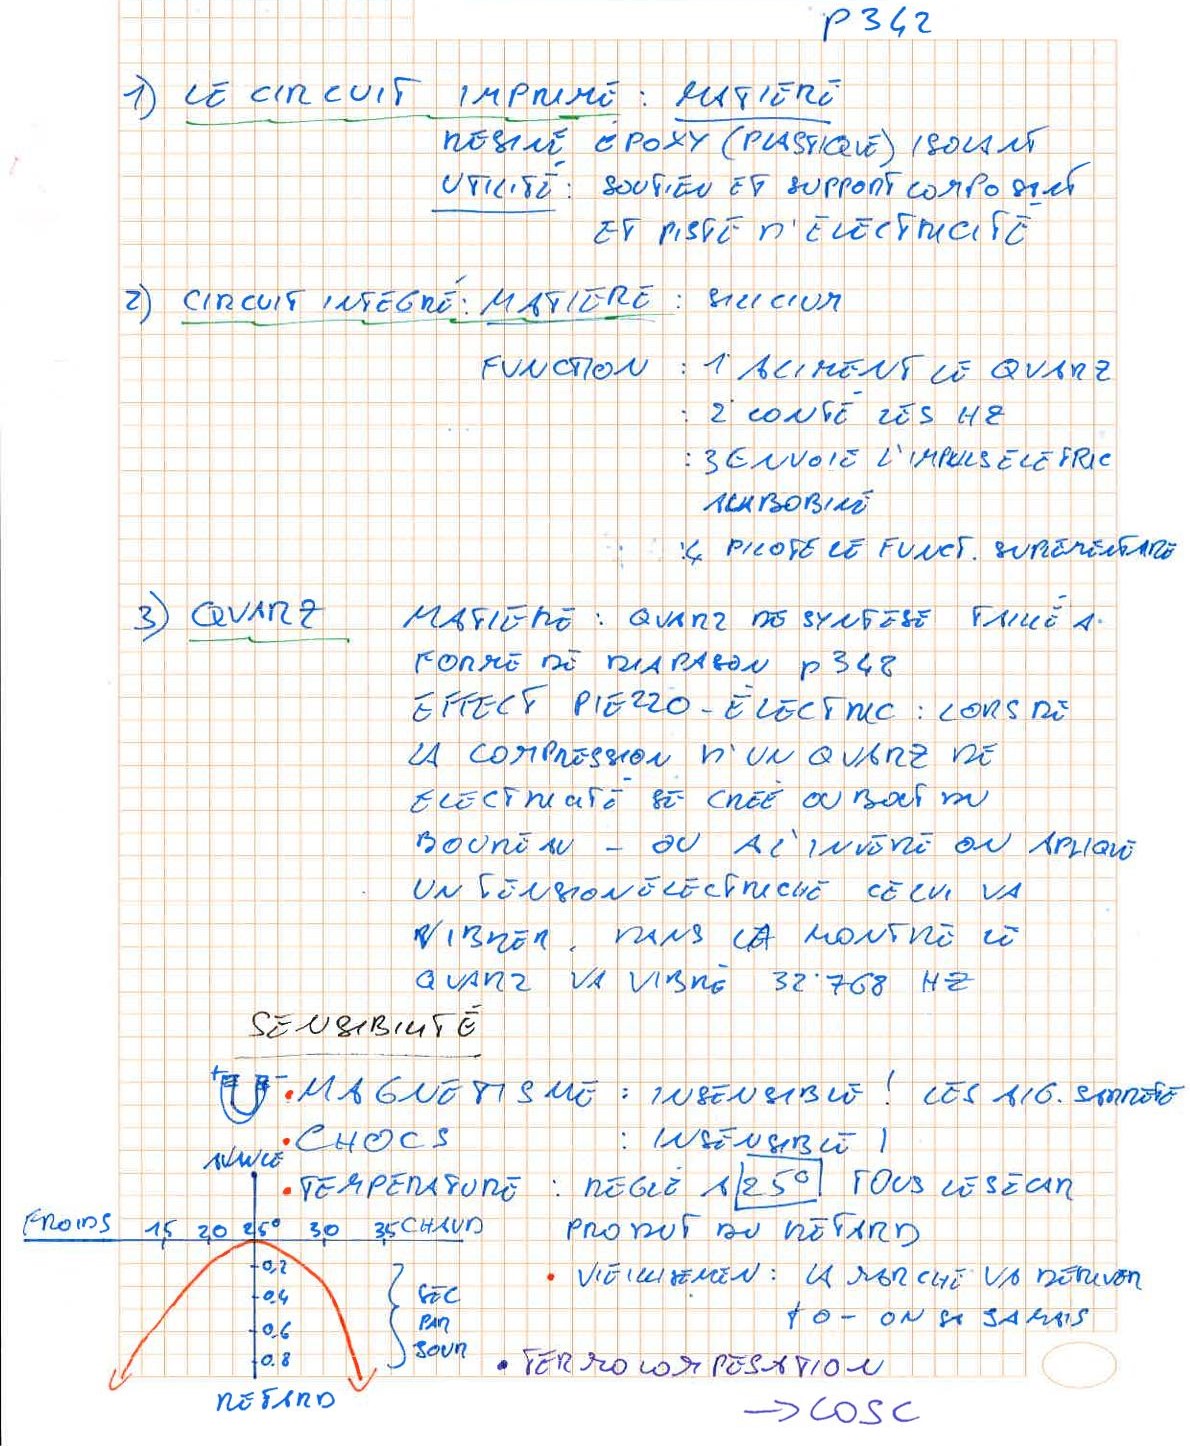 P342
1) LE CIRCUIT IMPRIMÉ : MATIERE
RESINE EPOXY (PLASTIQUE) ISOLANT
UTILITÉ : SOUTIEN ET SUPPORT COMPOSANT
ET PISTE D'ÉLECTRICITÉ
2) CIRCUIT INTEGRÉ : MATIERE : SILICIUM
FUNCTION : 1 ALIMENT LE QUARZ
: 2 CONTE LES HZ
: 3 ENVOIE L'IMPULS ELETRIC
A LA BOBINE
: 4 PILOTE LE FUNCT. SUPEMENTARE
3) QUARZ MATIERE : QUARZ DE SYNTESE TAILLÉ A
FORME DE DIAPASON P348
EFFECT PIEZZO-ÉLECTRIC : LORS DE
LA COMPRESSION D'UN QUARZ DE
ELECTRICITÉ SE CREÉ OU BOUT DU
BOUREAU - OU A L'INVERE ON APLIQUE
UN TENSION ÉLECTRICHE CELUI VA
VIBRER. DANS LA MONTRE LE
QUARZ VA VIBRÉ 32'768 HZ
SENSIBILITÉ
+ - • MAGNETISME : INSENSIBLE ! LES AIG. S'ARRETE
• CHOCS : INSENSIBLE !
AVANCE
• TEMPERATURE : REGLÉ A 25° TOUS LES ECAR
PRODUT DU RETARD
FROIDS 15 20 25° 30 35 CHAUD
0,2
0,4
0,6
0,8
SEC
PAR
JOUR
RETARD
• VIEILLISEMEN : LA MARCHE VA DERIVER
+ O - ON SE JAMAIS
• TERMOCOMPESATION
→ COSC